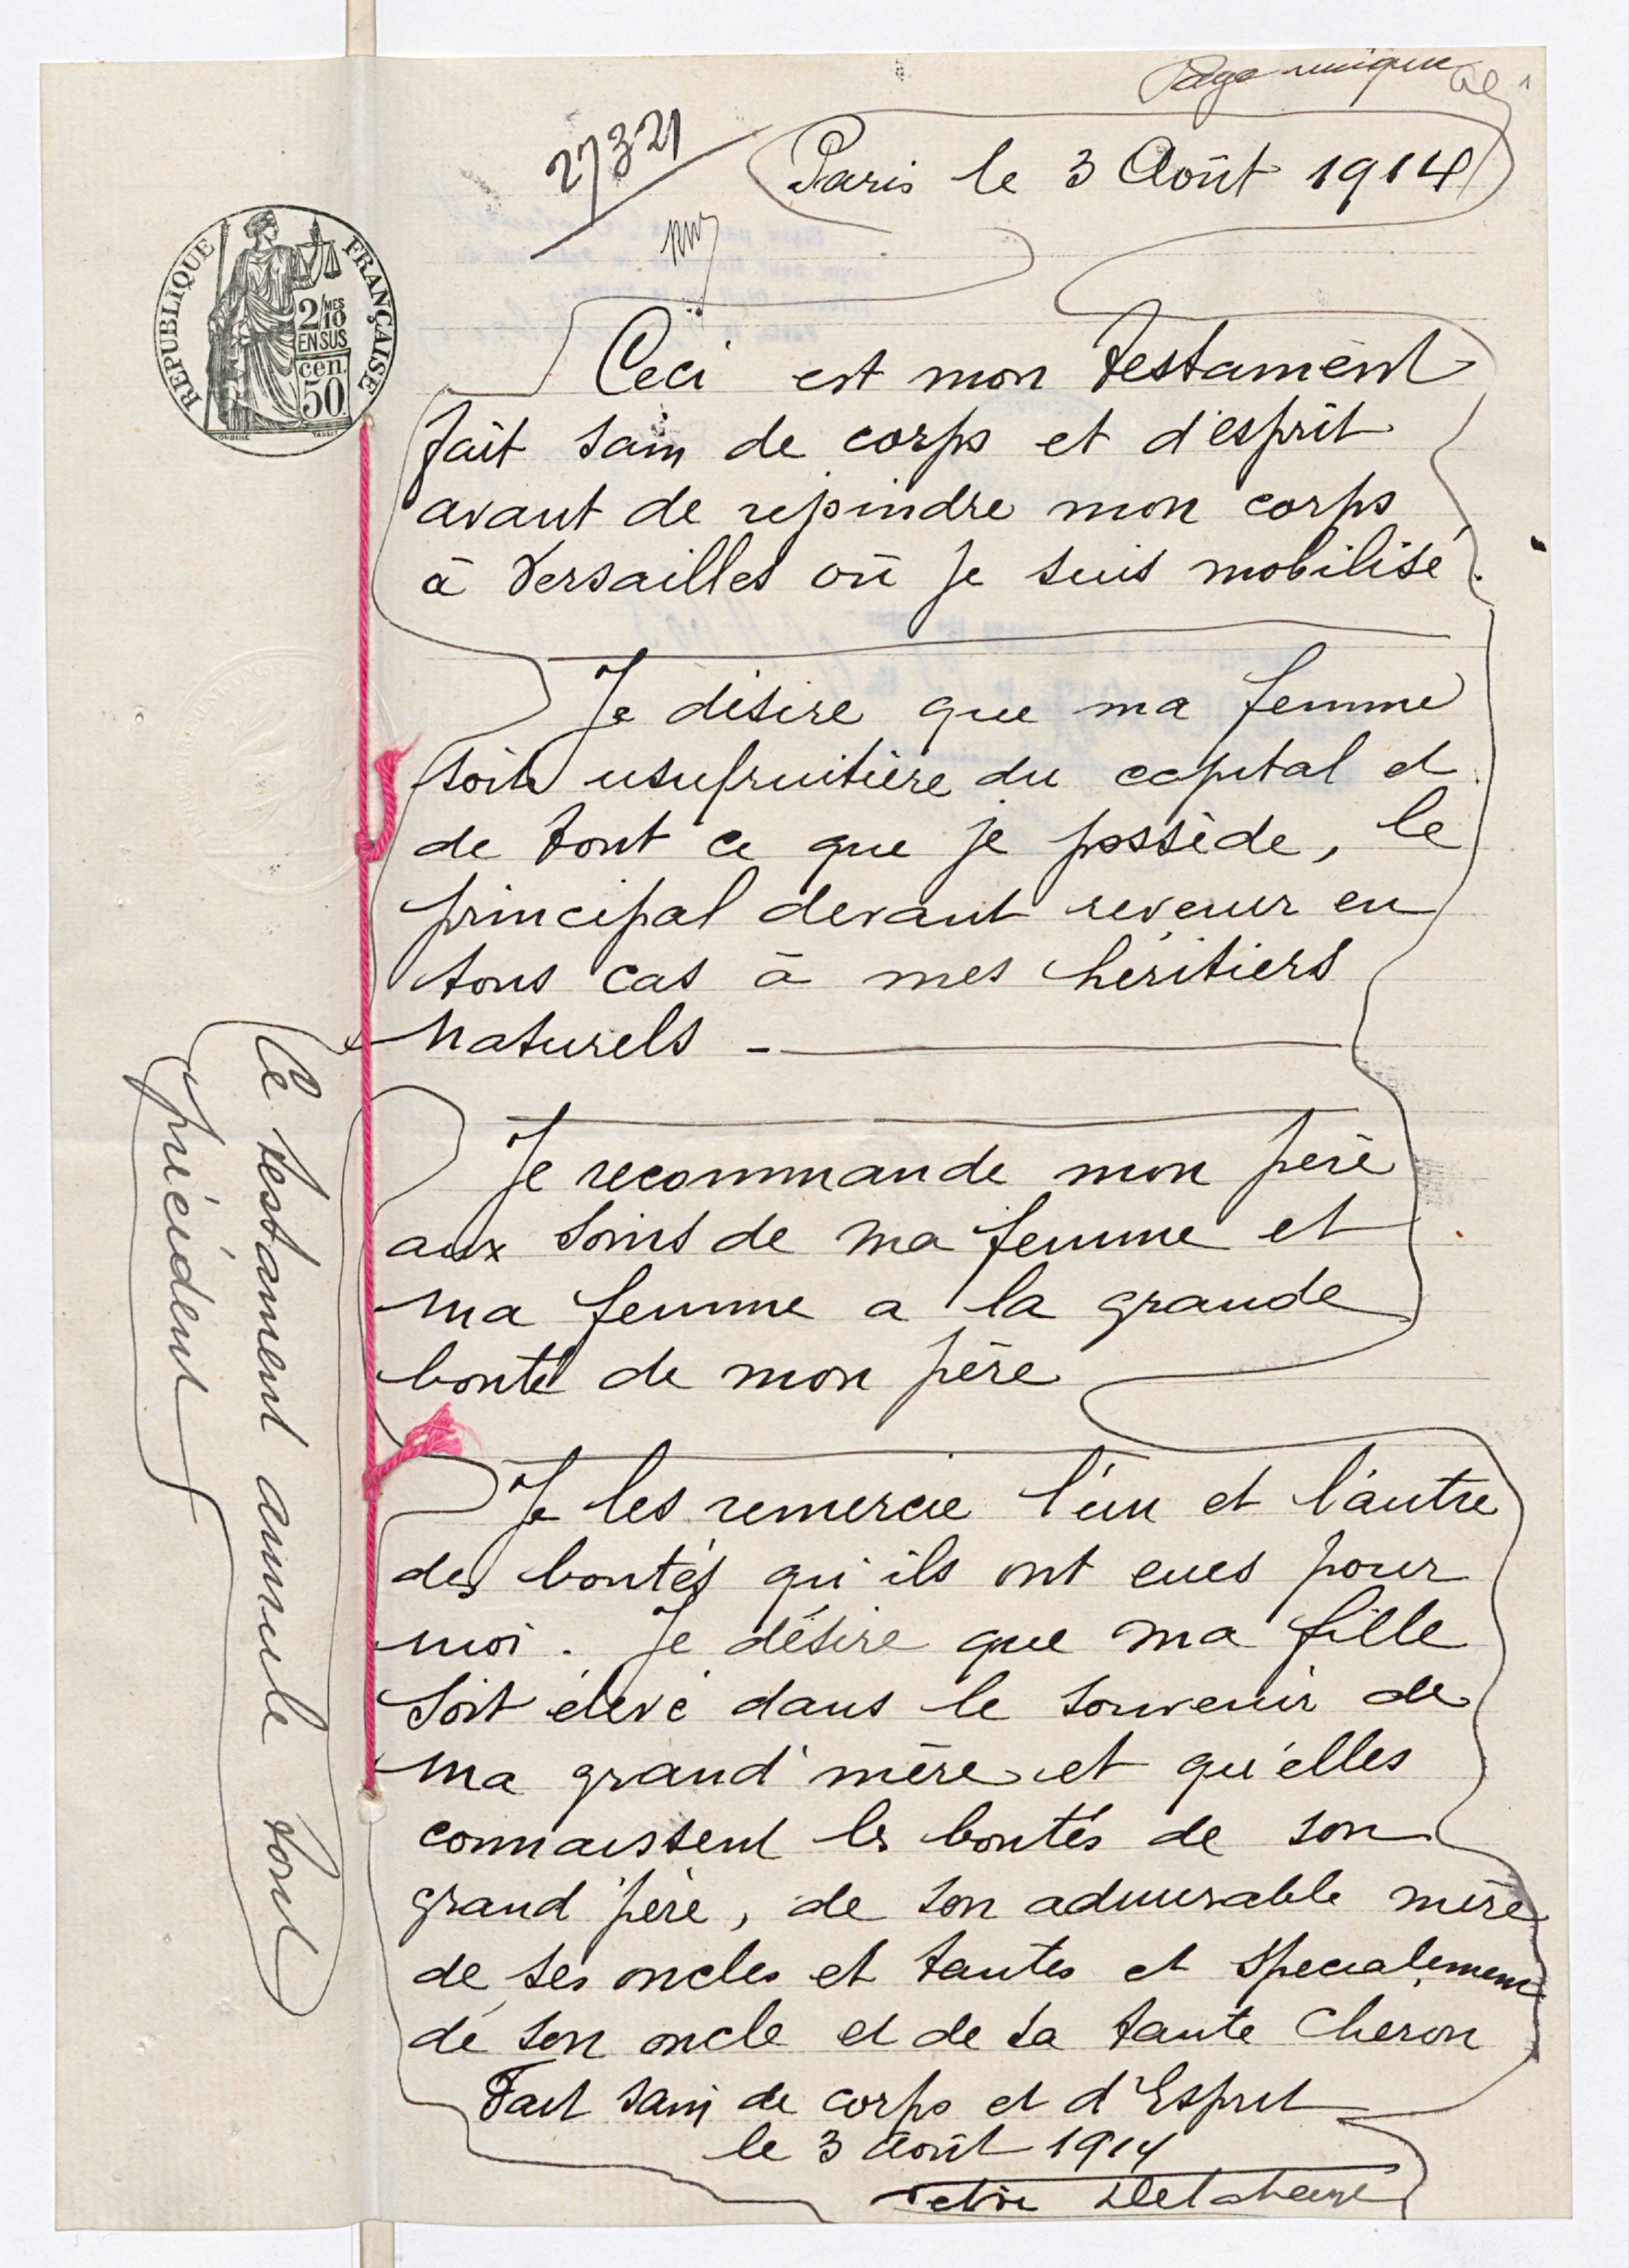 Page unique
27321
Paris le 3 Août 1914
REPUBLIQUE FRANÇAISE
2/10 MES
EN SUS
cen.
50
Ceci est mon testament
fait sain de corps et d'esprit
avant de rejoindre mon corps
à Versailles où je suis mobilisé.
Je désire que ma femme
soit usufruitière du capital et
de tout ce que je possède, le
principal devant revenir en
tous cas à mes héritiers
naturels -
Je recommande mon père
aux soins de ma femme et
ma femme a la grande
bonté de mon père
Je les remercie l'un et l'autre
des bontés qu'ils ont eues pour
moi. Je désire que ma fille
soit élevé dans le souvenir de
ma grand'mère et qu'elles
connaissent les bontés de son
grand père, de son admirable mère
de ses oncles et tantes et specialement
de son oncle et de sa tante Cheron
Fait sain de corps et d'Esprit
le 3 Août 1914
Ce testament annule tout
précédent